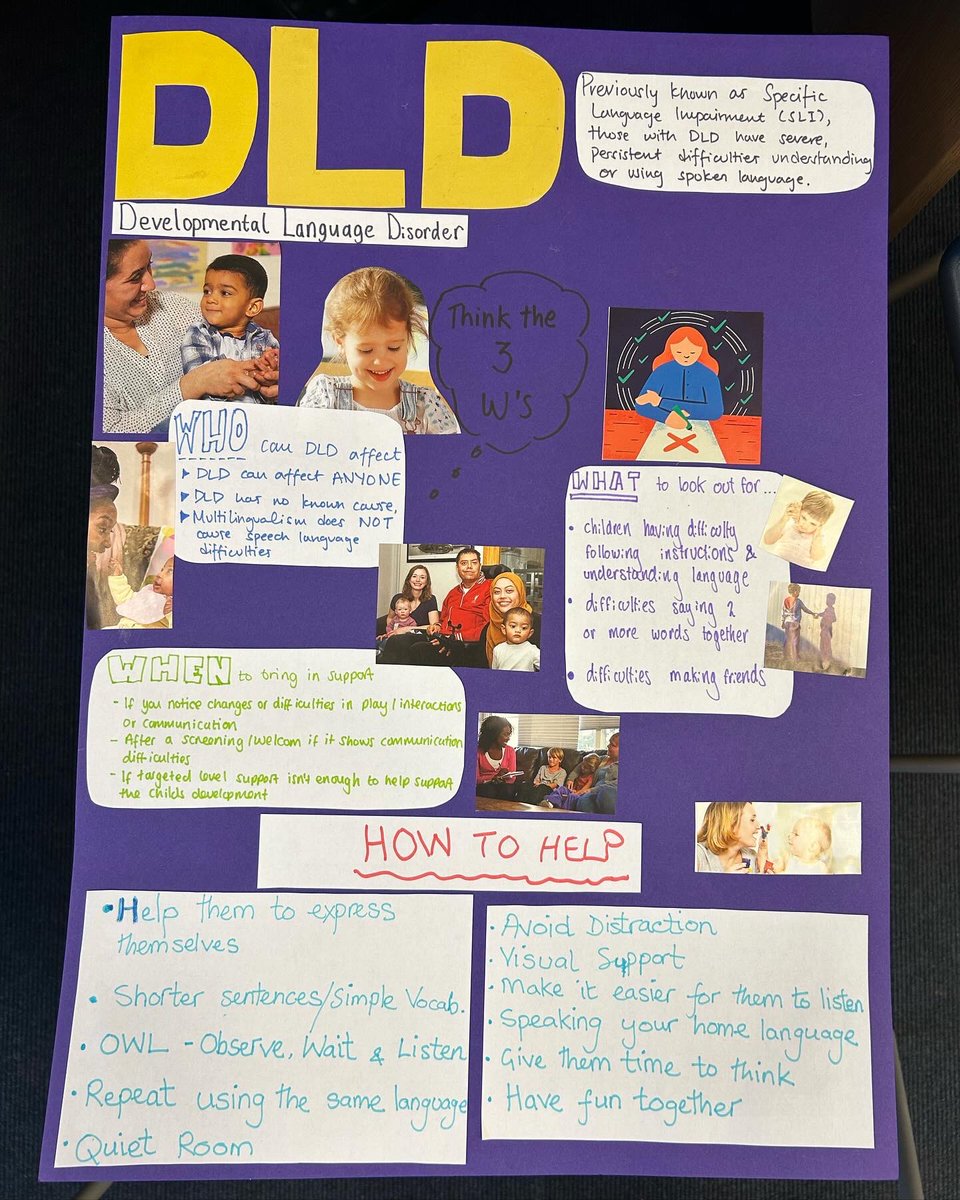 DLD
Previously known as Specific
Language Impairment (SLI),
those with DLD have severe,
persistent difficulties understanding
or using spoken language.
Developmental Language Disorder
Think the
3
W's
WHO can DLD affect
▸ DLD can affect ANYONE
▸ DLD has no known cause,
▸ Multilingualism does NOT
cause speech language
difficulties
WHAT to look out for...
• children having difficulty
following instructions &
understanding language
• difficulties saying 2
or more words together
• difficulties making friends
WHEN to bring in support
- If you notice changes or difficulties in play/interactions
or communication
- After a screening/welcom if it shows communication
difficulties
- If targeted level support isn't enough to help support
the childs development
HOW TO HELP
• Help them to express
themselves
• Shorter sentences/Simple Vocab.
• OWL - Observe, Wait & Listen
• Repeat using the same language
• Quiet Room
• Avoid Distraction
• Visual Support
• Make it easier for them to listen
• Speaking your home language
• Give them time to think
• Have fun together